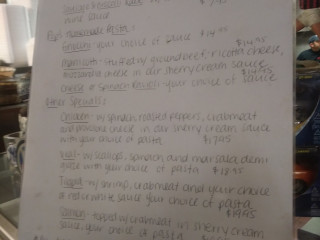 wine sauce
Homemade Pasta:
your choice of sauce $14.95
$16.95
Manicotti - stuffed w/ ground beef, ricotta cheese,
mozzarella cheese in our sherry cream sauce
$14.95
Cheese & Spinach Ravioli - your choice of sauce
Other Specials:
Chicken - w/ spinach roasted peppers, crabmeat
and provolone cheese in our sherry cream sauce
with your choice of pasta $17.95
Veal - w/ scallops, spinach and marsala demi
with your choice of pasta $18.95
Tilapia - w/ shrimp, crabmeat and your choice
of red or white sauce your choice of pasta
$19.95
Salmon - topped w/ crabmeat in sherry cream
sauce, your choice of pasta